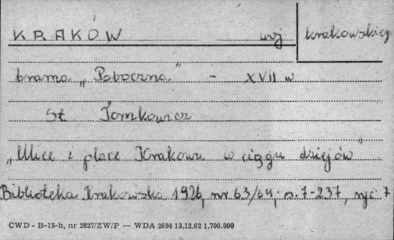 KRAKÓW woj krakowskie
brama „Poboczna" - XVII w
St Tomkowicz
„Ulice i place Krakowa w ciągu dziejów"
Biblioteka Krakowska 1926, nr 63/64, s. 7-237, ryc 7
CWD - B-15-b, nr 2827/ZW/P — WDA 2694 13.12.62 1.700.000